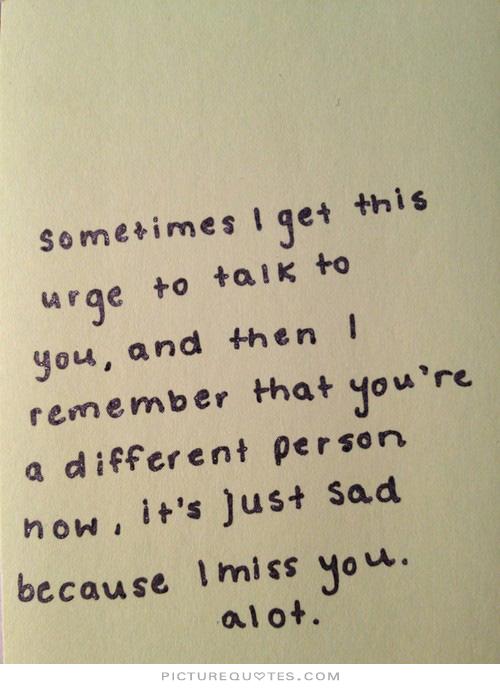 sometimes I get this
urge to talk to
you, and then I
remember that you're
a different person
now, it's just sad
because I miss you.
alot.
PICTUREQUOTES.COM